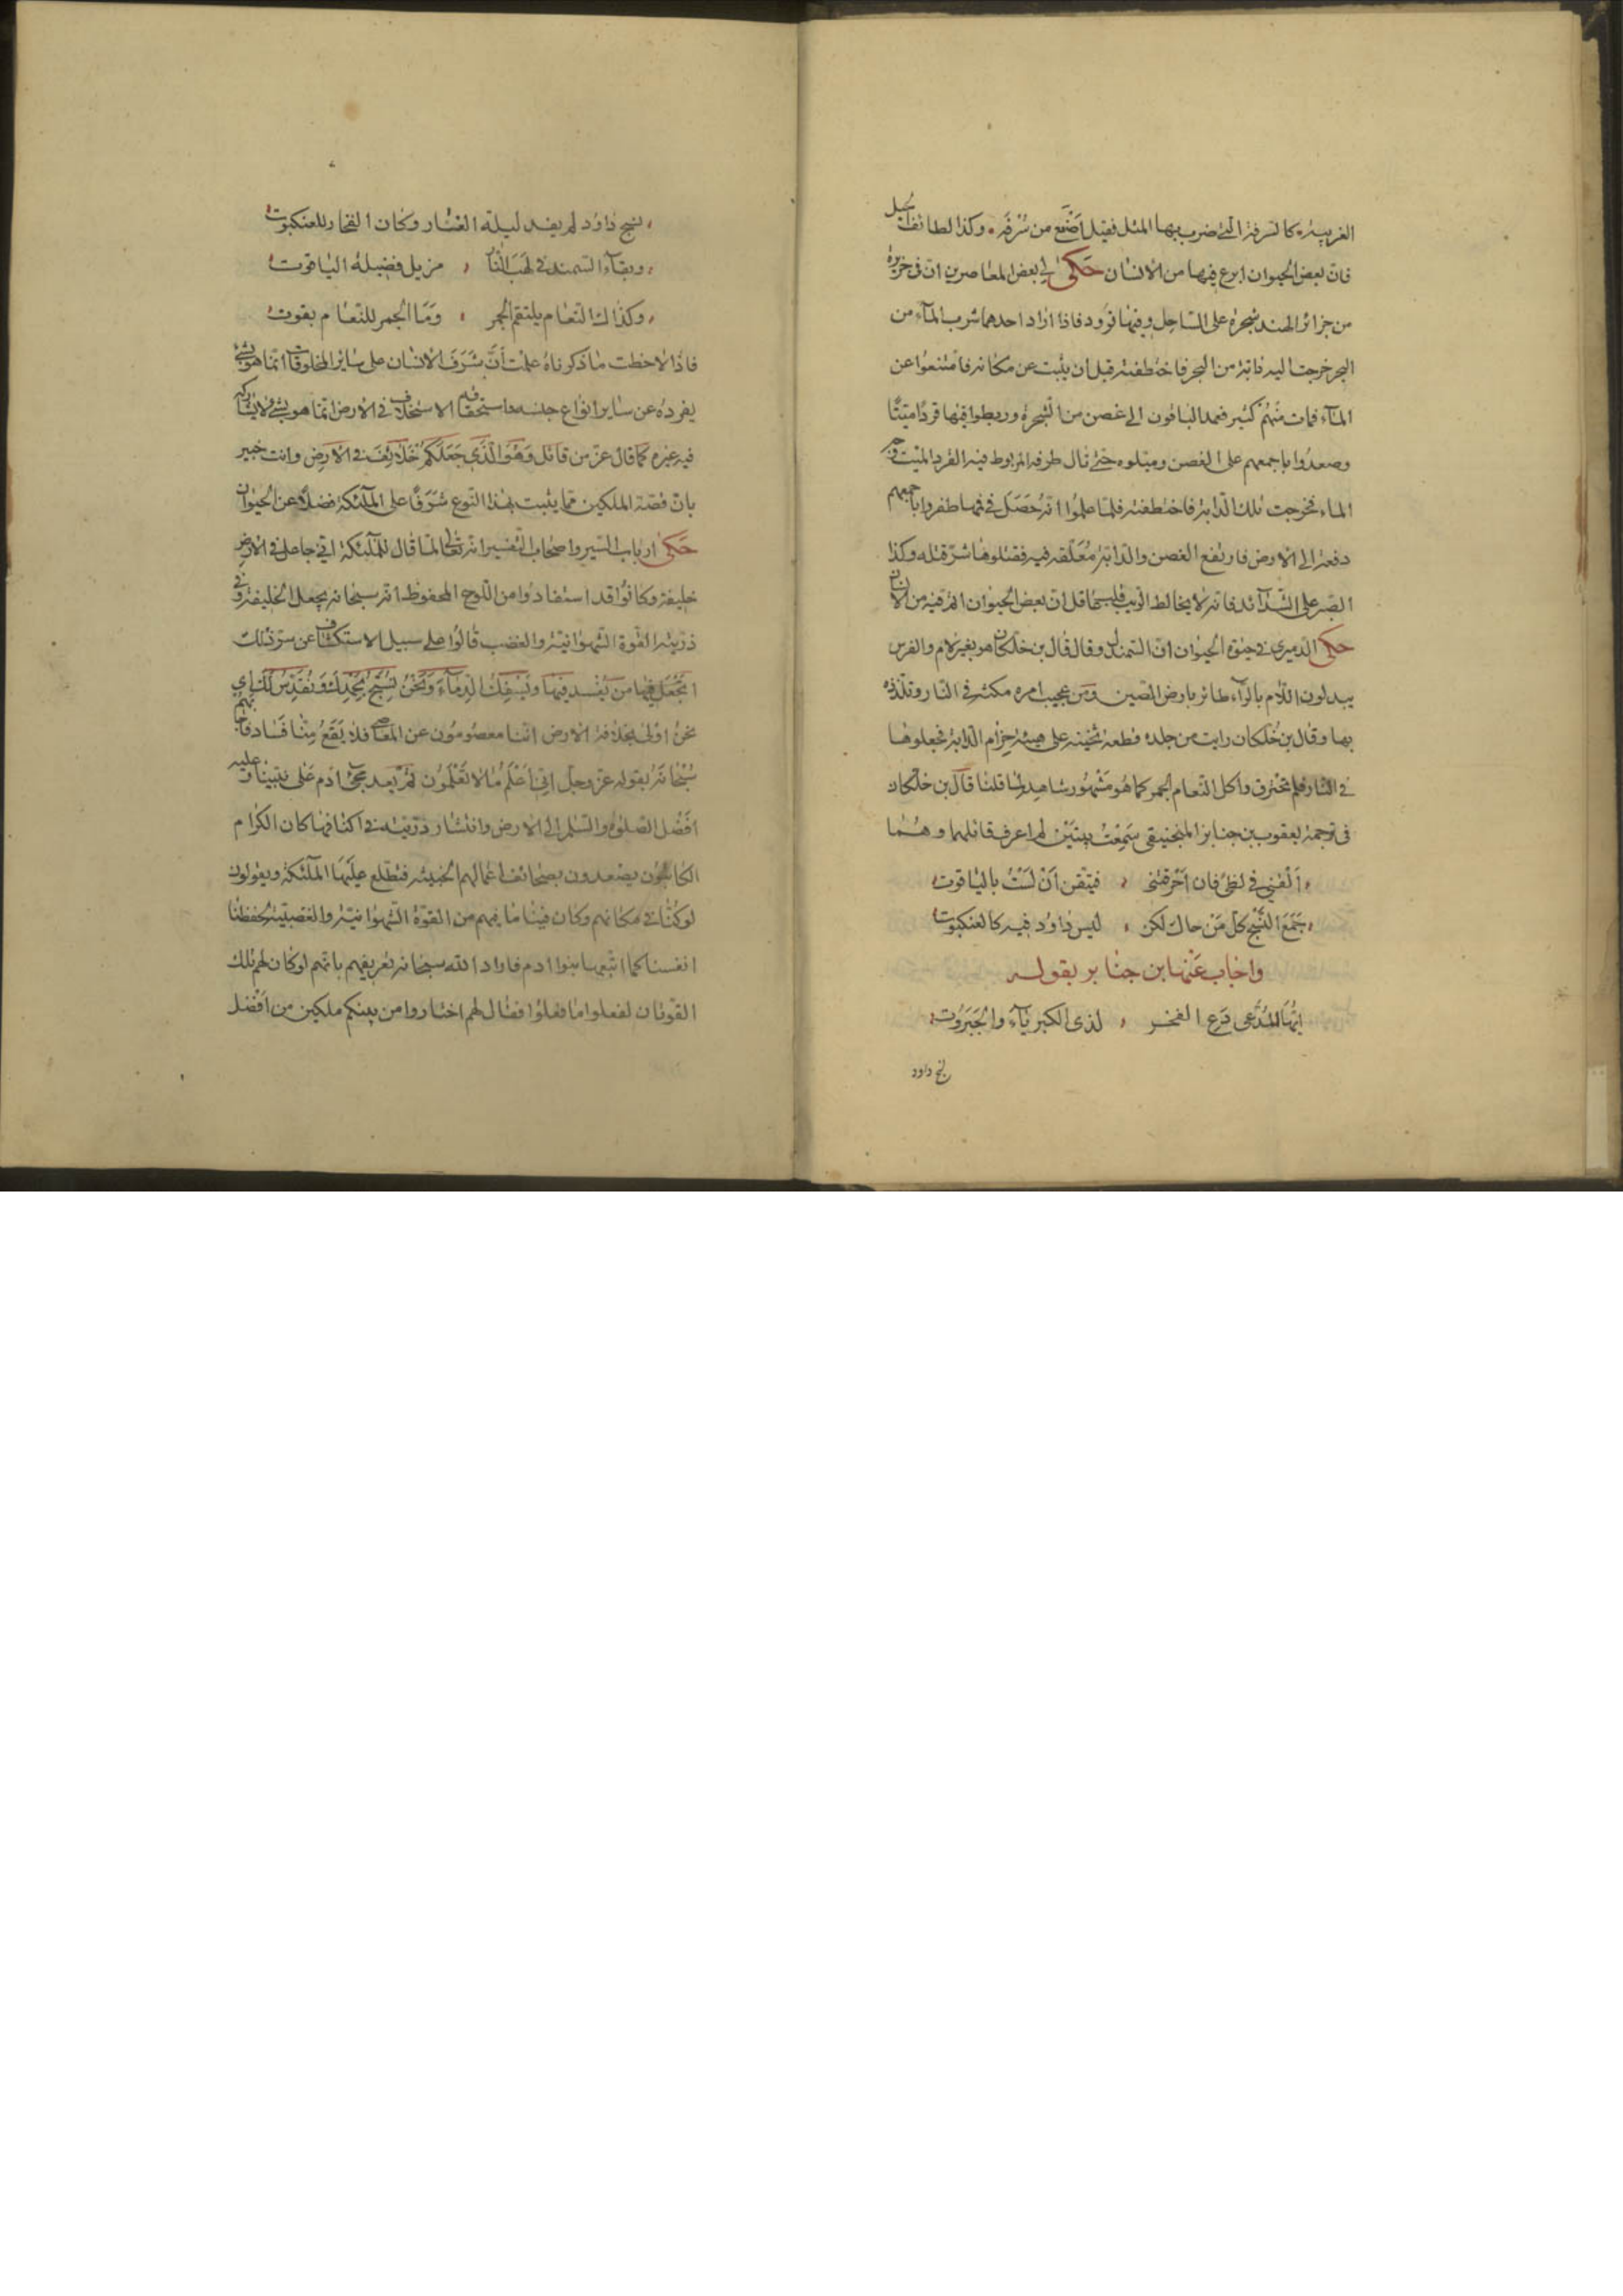 الغريبة كالسرفة التي ضرب بها المثل فقيل اصنع من سُرْفَة وكذا لطائف الحيل
فان بعض الحيوان ابرع فيها من الانسان حَكى لي بعض المعاصرين ان في جزيرة
من جزائر الهند شجرة على الساحل وفيها قرود فاذا اراد احدهما شرب المآء من
البحر خرجت اليه دابة من البحر فاختطفته قبل ان يثبت عن مكانه فامتنعوا عن
المآء فمات منهم كثير فعمد الباقون الى غصن من الشجرة وربطوا فيها قردًا ميتًا
وصعدُوا باجمعهم على الغصن وميلوه حتى نال طرفه المربوط فيه القرد الميت وجه
الماء فخرجت تلك الدابة فاختطفته فلما علمُوا انه حَصَل في فمها طفروا باجمعهم
دفعة الى الارض فارتفع الغصن والدابة مُعَلّقة فيه فقتلوها شرّ قتله وكذا
الصّبر على الشّدآئد فانه لا يخالط الريب قلبي قل ان بعض الحيوان اقوى فيه من الانسان
حكى الدميري في حيٰوة الحيوان انّ السّمندل وقال قال بن خلكان هو بغير لام والفرس
يبدلون اللّام بالرآء طائر بارض الصّين ومن عجيب امره مكثه في النار وتلذذه
بها وقال بن خلكان رايت من جلده قطعة ثخينه على هيئة حِزام الدّابة فجعلوها
في النّار فلم تحترق واكل النّعام الجمر كما هُو مَشْهُور شاهد لما قلنا قال بن خلكان
في ترجمة يعقوب بن جنابر المنجنيقي سَمِعْتُ بيتَيْن لم اعرف قائلهما وهُمٰا
اَلْقِني في لظىٰ فان اَحْرقتني فتيقن اَنْ لَسْتُ باليٰاقوت
جَمَعَ النَّسْج كل مَنْ حاك لكن ليس داوُد فيه كالعنكبوت
واجٰاب عَنْها بن جنٰابر بقولـه
ايّهَا المُدَّعي دَع الفخر لذي الكبريٰآء والجَبَرُوت
نسج داود
نسج دٰاوُد لم يفد ليلة الغٰار وكان الفخار للعنكبوت
وبقآء السّمند في لَهَب النّٰار مزيل فضيلة اليٰاقوت
وكذٰاك النّعٰام يلتقم الجمر ومَا الجمر للنّعٰام بقوت
فاذا لاحظت مٰا ذكرناهُ علمت اَنَّ شَرَفَ الانسان على سٰاير المخلوقات انّما هو بشئ
يفردهُ عن سٰاير انواع جنسه واستحقاقه الاستخلاف في الارض انّما هو بشئ لا يشاركه
فيه غيره كما قال عزّ من قائل وَهُوَ الَّذي جَعَلَكُمْ خَلائِفَ في الارض وانت خبير
بانّ قصّة الملكين ممّا يثبت لهذا النّوع شرفًا على الملٓئكة فضلًا عن الحيوان
حَكىٰ ارباب السّير واصحاب التّفسير انه تعٰالى لمّا قال للمَلٓئكة اني جاعل في الارض
خليفة وكانُوا قد استفادُوا من اللّوح المحفوظ انه سبحانه يجعل الخليفة وفي
ذرّيته القوة الشّهوٰانيّة والغضب قٰالُوا على سبيل الاستكشاف عن سرّ ذلك
اتَجْعَل فيهٰا من يُفْسد فيهَا ويَسْفك الدّمآءَ ونَحْنُ نُسَبِّح بحَمْدِكَ وَنُقَدِّسُ لَكَ اي
نحنُ اولىٰ بخلافة الارض انّنا معصُومُون عن المعاصي فلا يَقَعُ مِنّٰا فَسٰاد فاجابهم
سُبْحٰانَهُ بقوله عزّ وجلّ اِنّي اَعْلَمُ مٰا لا تَعْلَمُون ثُمّ بعد مجئ ادم عَلى نبيّنا وعليه
اَفضَل الصّلوٰة والسّلم الى الارض وانتشار ذرّيته في اكنافها كان الكرام
الكاتبُون يصْعدون بصحائف اعمٰالهم الخبيثة فتطّلع عليهَا الملٓئكة ويقولون
لو كنّٰا في مكانهم وكان فينٰا مٰا فيهم من القوّة الشّهوٰانيّة والغضبيّة لحفظنٰا
انفسنا كما اتبعها بنوا ادم فاراد اللّٰه سبحٰانه تعريفهم بانّهم لو كان لهم تلك
القوّتان لفعلوا مٰا فعلُوا فقٰال لهم اختاروا من بينكم ملكين من اَفْضَل